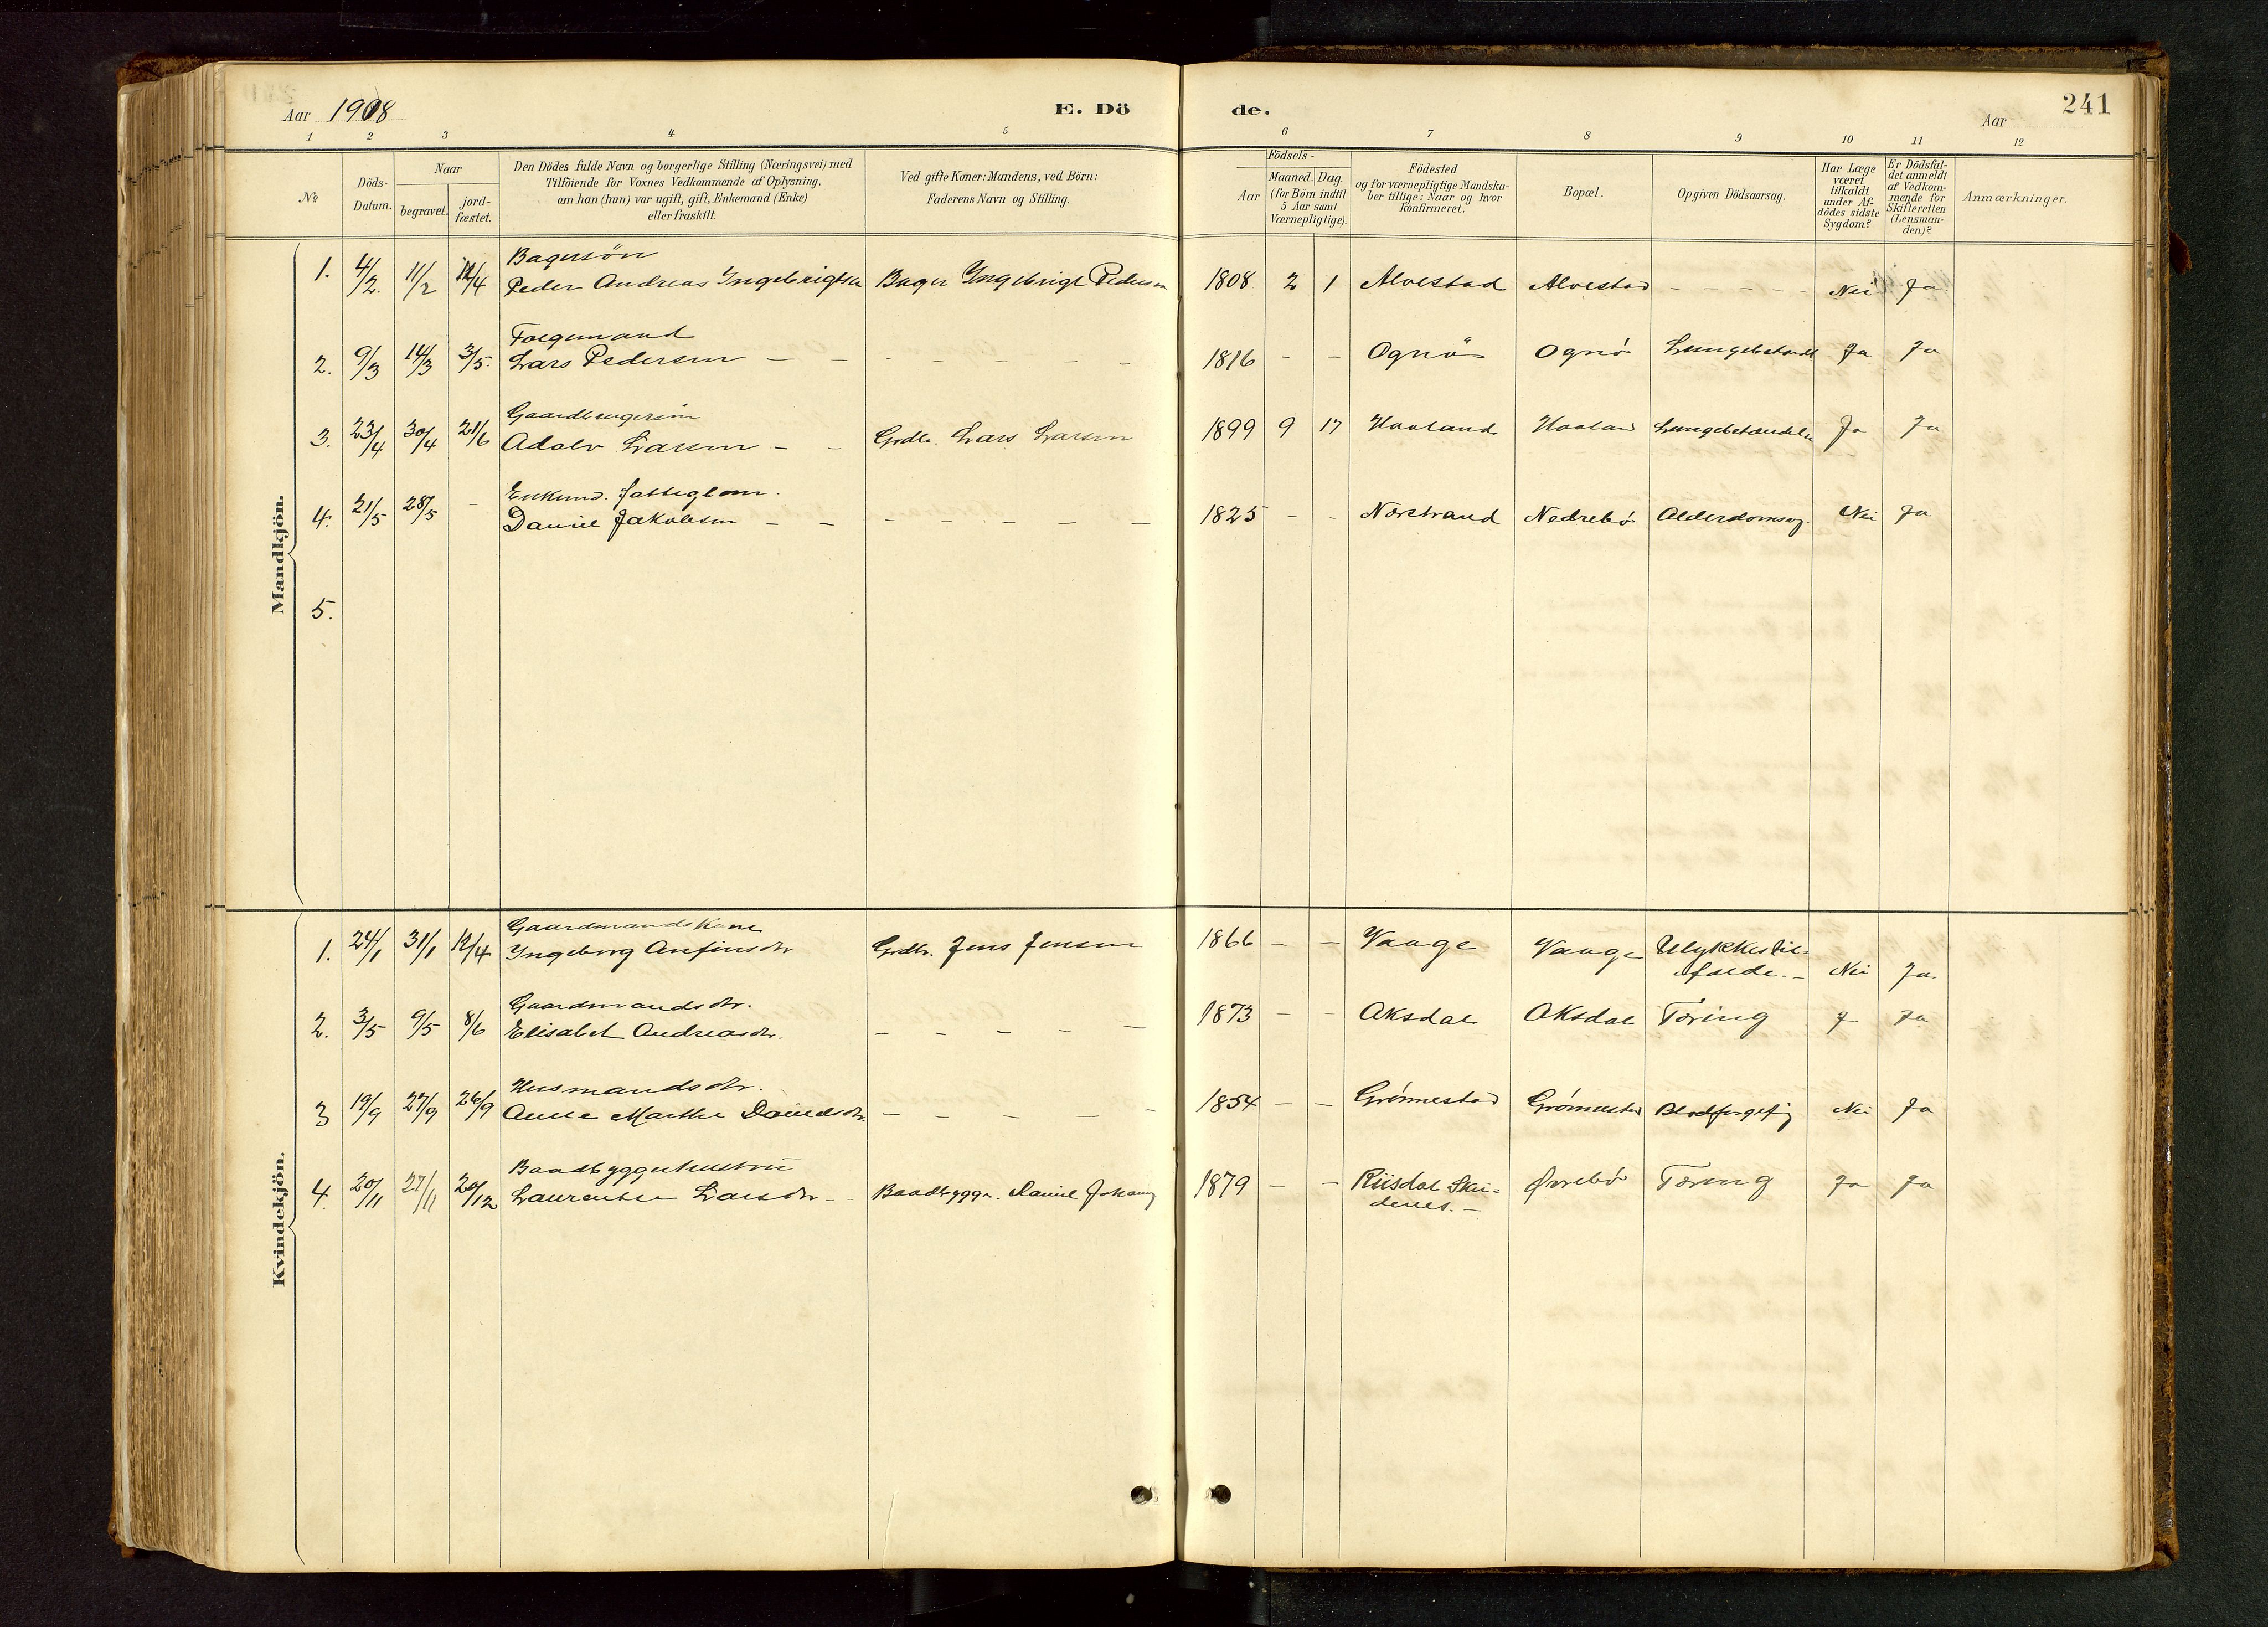 Aar 1908 E. Dö de. Aar 241
1 2 3 4 5 6 7 8 9 10 11 12
No.
Döds-
Datum.
Naar
begravet.
jord-
fæstet.
Den Dödes fulde Navn og borgerlige Stilling (Næringsvei) med
Tilföiende for Voxnes Vedkommende af Oplysning,
om han (hun) var ugift, gift, Enkemand (Enke)
eller fraskilt.
Ved gifte Koner: Mandens, ved Börn:
Faderens Navn og Stilling.
Födsels-
Aar
Maaned. Dag.
(for Börn indtil
5 Aar samt
Værnepligtige).
Födested
og for værnepligtige Mandska-
ber tillige: Naar og hvor
konfirmeret.
Bopæl.
Opgiven Dödsaarsag.
Har Læge
været
tilkaldt
under Af-
dödes sidste
Sygdom?
Er Dödsfal-
det anmeldt
af Vedkom-
mende for
Skifteretten
(Lensman-
den)?
Anmærkninger.
Mandkjön.
Bagersön
1. 4/2. 11/2 12/4 Peder Andreas Ingebrigtsen Bager Ingebrigt Pedersen 1808 2 1 Alvestad Alvestad - - - - - Nei Ja
Lars Pedersen - - - - - - -
2. 9/3 14/3 3/5. 1816 - - Ognö Ognö Ja Ja
Gaardbrugersön
3. 23/4 30/4 21/6 Adolv Larsen - - Grdbr. Lars Larsen 1899 9 17 Haaland Haaland Lungebetændelse Ja Ja
Enkemd. fattiglem.
4. 21/5 28/5 - Daniel Jakobsen - - - - - - - 1825 - - Nærstrand Nedrebø Alderdomssvag. Nei Ja
5.
Kvindekjön.
Gaardmandskone
1. 24/1 31/1 12/4 Ingeborg Anfinsdtr Grdbr. Jens Jensen 1866 - - Vaage Vaage Ulykkestil-
fælde. - Nei Ja
Gaardmandsdtr.
2. 3/5 9/5 8/6 Elisabet Andreasdtr. - - - - - 1873 - - Aksdal Aksdal Tæring J Ja
Husmandsdtr.
3 19/9 27/9 26/9 Anne Marthe Danielsdtr. - - - - - 1854 - - Grønnestad Grønnestad Blodforgiftg Nei Ja
Baadbyggerhustru
4. 20/11 27/11 20/12 Larsdtr - - Baadbygger. Daniel 1879 - - Riisdal Sku-
denes. - Ørrebø Tæring Ja Ja